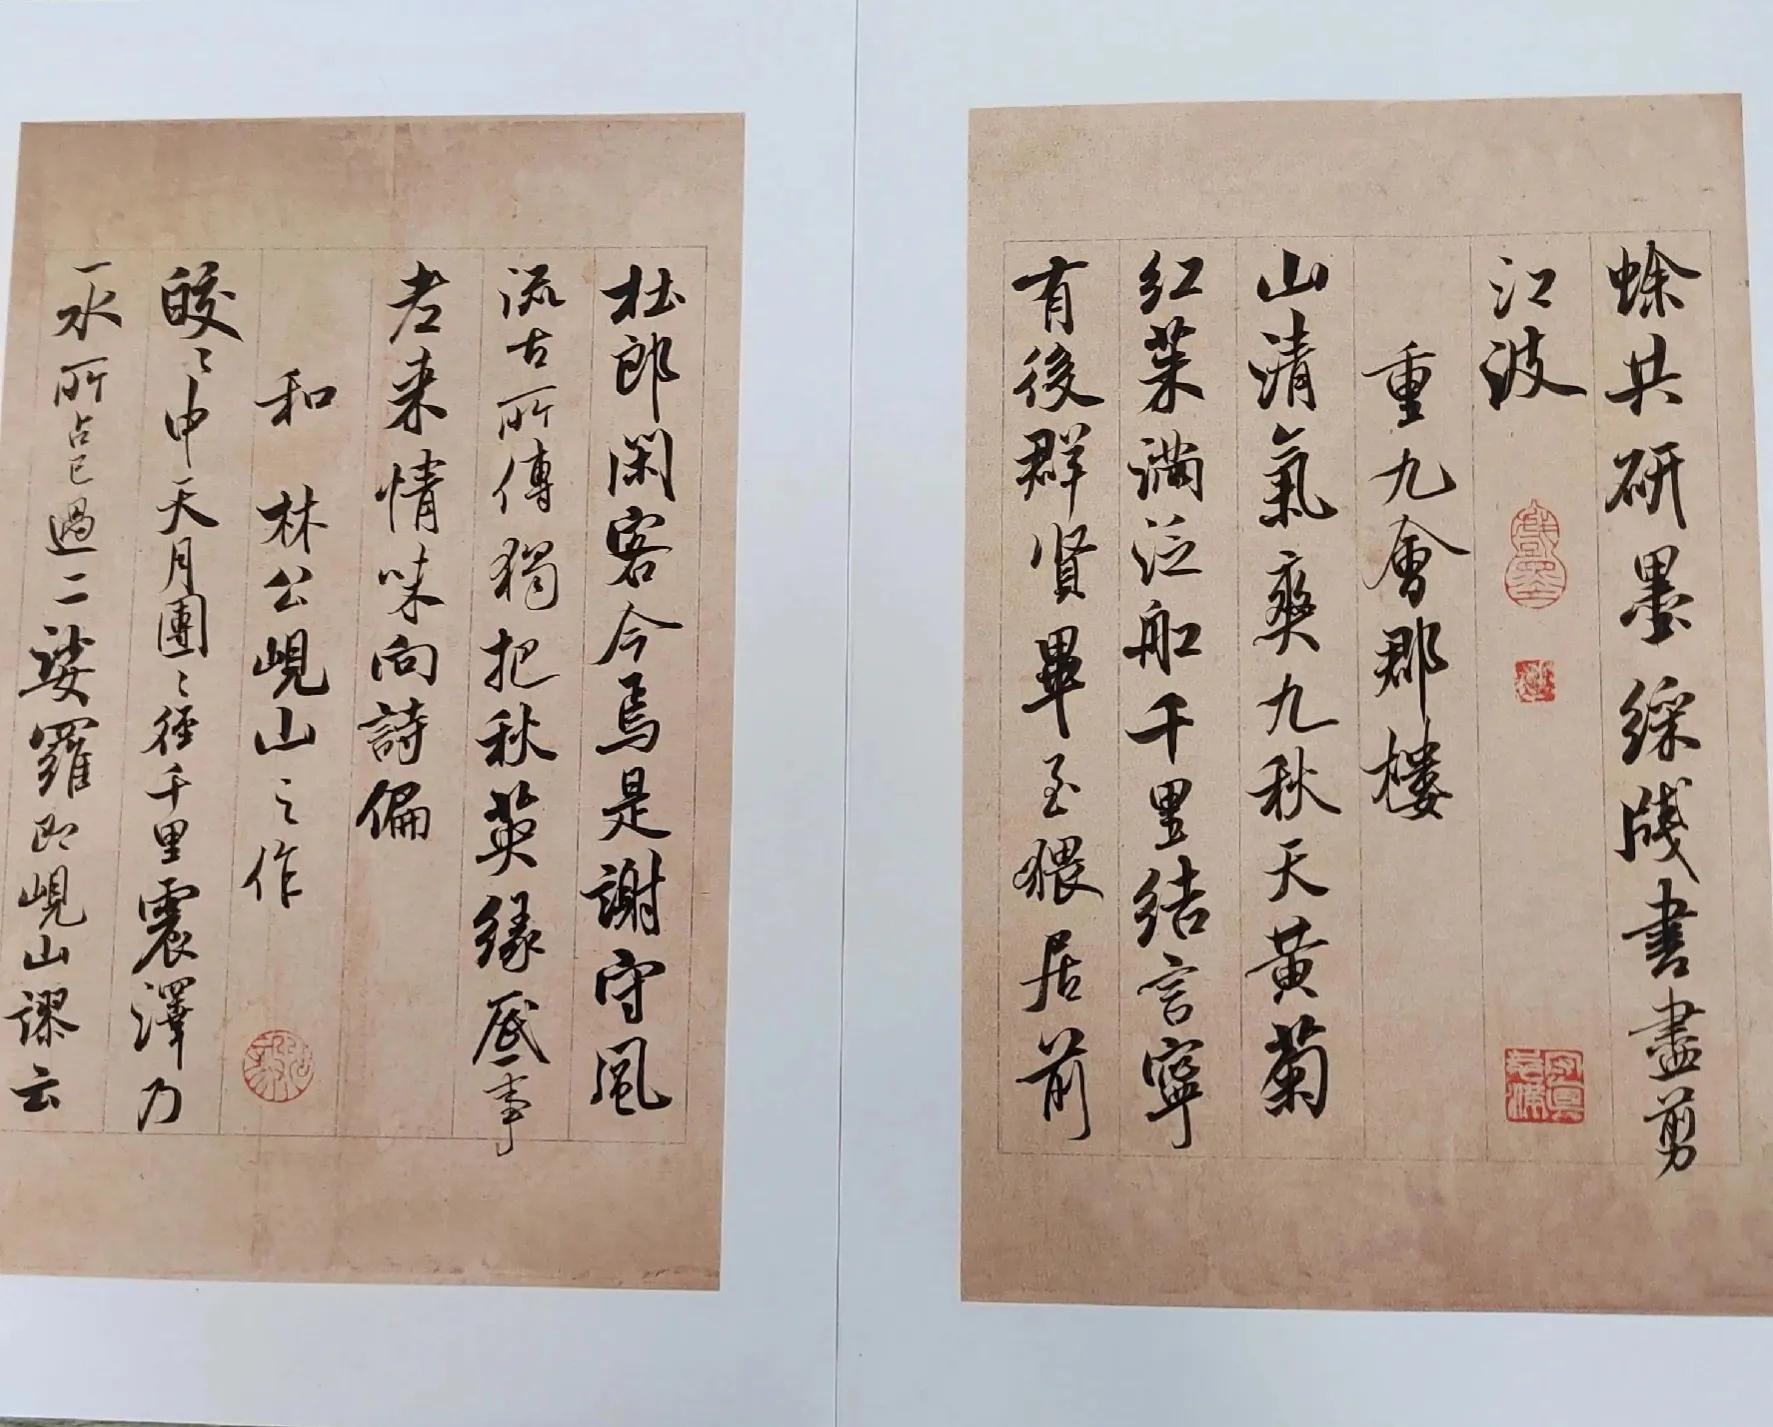 蜍共研墨綵牋書盡剪
江波
重九會郡樓
山清氣爽九秋天黃菊
紅茱滿泛船千里結言寧
有後群賢畢至猥居前
杜郎閑客今焉是謝守風
流古所傳獨把秋英緣底事
老來情味向詩偏
和林公峴山之作
皎〻中天月團〻徑千里震澤乃
一水所占已過二娑羅即峴山謬云